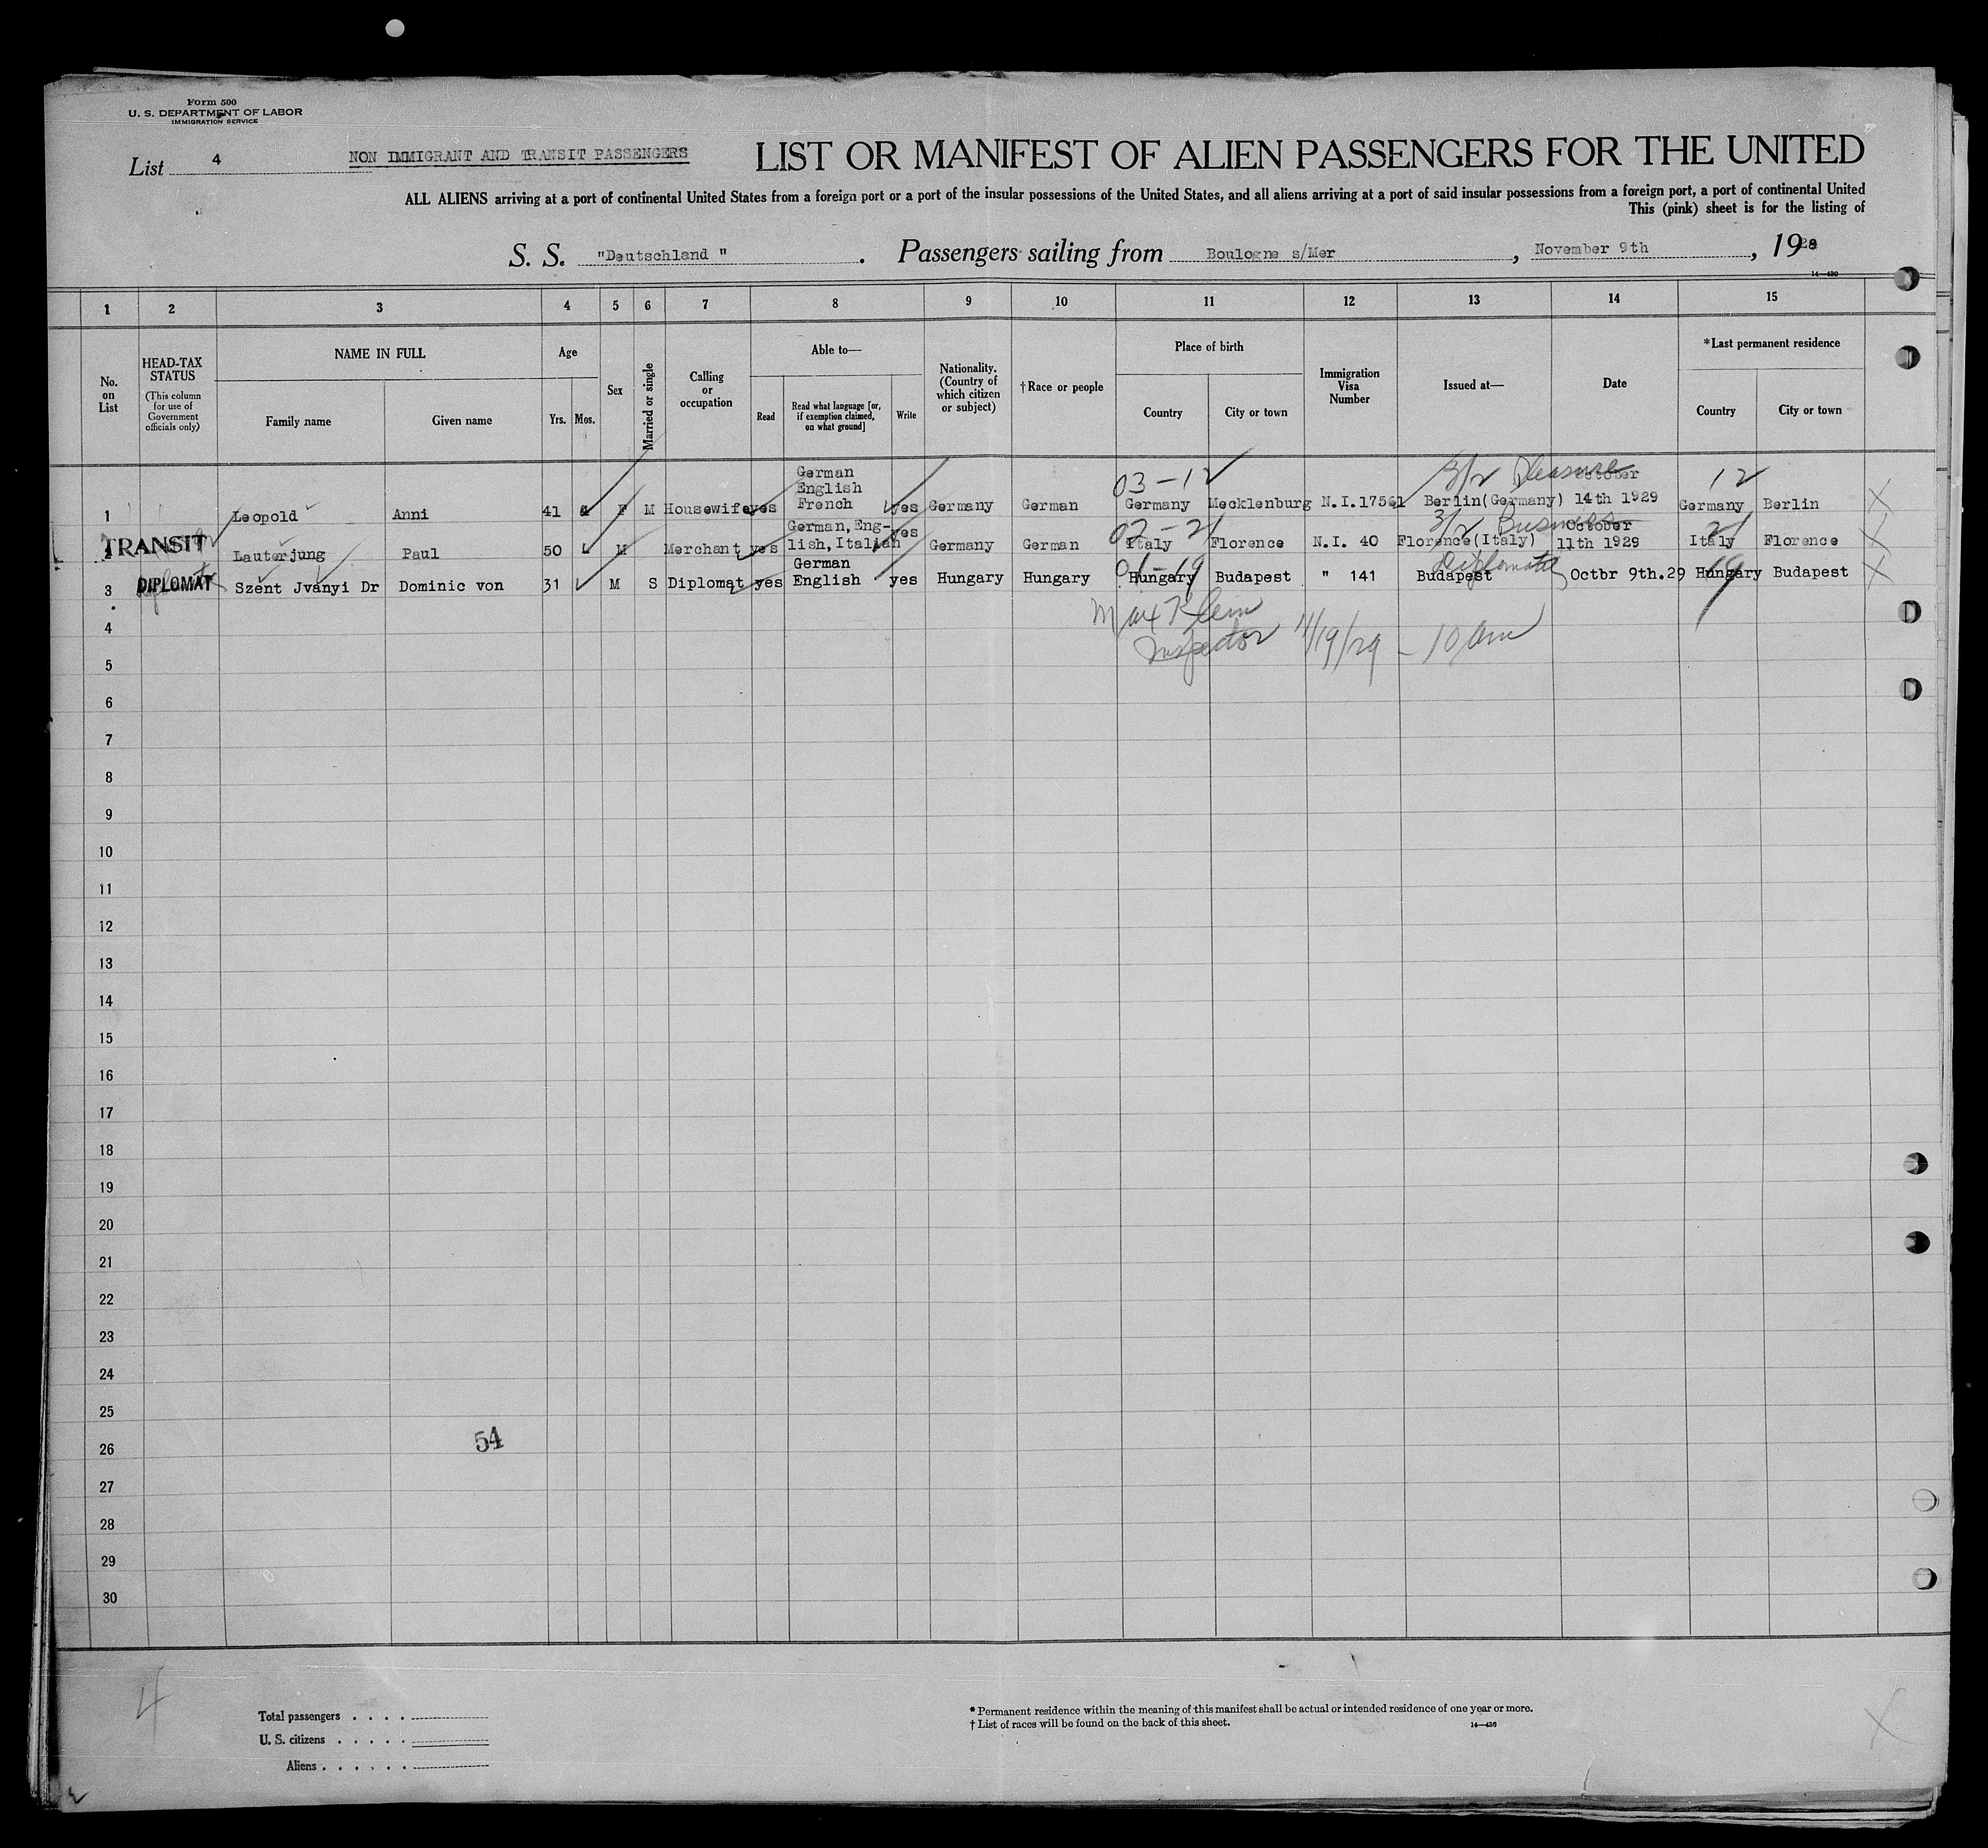 Form 500
U. S. DEPARTMENT OF LABOR
IMMIGRATION SERVICE
List 4 NON IMMIGRANT AND TRANSIT PASSENGERS LIST OR MANIFEST OF ALIEN PASSENGERS FOR THE UNITED
ALL ALIENS arriving at a port of continental United States from a foreign port or a port of the insular possessions of the United States, and all aliens arriving at a port of said insular possessions from a foreign port, a port of continental United
This (pink) sheet is for the listing of
S. S. "Deutschland". Passengers sailing from Boulogne s/Mer, November 9th, 19
14—430
1 2 3 4 5 6 7 8 9 10 11 12 13 14 15
No. on List
HEAD-TAX STATUS
(This column for use of Government officials only)
NAME IN FULL
Family name Given name
Age
Yrs. Mos.
Sex
Married or single
Calling or occupation
Able to—
Read
Read what language [or, if exemption claimed, on what ground]
Write
Nationality. (Country of which citizen or subject)
†Race or people
Place of birth
Country City or town
Immigration Visa Number
Issued at—
Date
*Last permanent residence
Country City or town
03-12 3/2 Pleasure 12
1 Leopold Anni 41 F M Housewife yes German English French yes Germany German Germany Mecklenburg N.I.17561 Berlin(Germany) October 14th 1929 Germany Berlin X
02-21 3/2 Business 21
TRANSIT Lauterjung Paul 50 M Merchant yes German, English, Italian yes Germany German Italy Florence N.I. 40 Florence(Italy) October 11th 1929 Italy Florence X
01-19 Diplomat 19
3 DIPLOMAT Szent Jvanyi Dr Dominic von 31 M S Diplomat yes German English yes Hungary Hungary Hungary Budapest " 141 Budapest Octbr 9th.29 Hungary Budapest X
Max Klein
Inspector 11/19/29 – 10 am
4
5
6
7
8
9
10
11
12
13
14
15
16
17
18
19
20
21
22
23
24
25
54
26
27
28
29
30
4
Total passengers
U. S. citizens
Aliens
* Permanent residence within the meaning of this manifest shall be actual or intended residence of one year or more.
† List of races will be found on the back of this sheet. 14—430
X